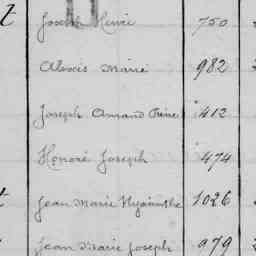 Joseph Henri 750
Aloïs Marie 982
Joseph Amand René 412
Honoré Joseph 474
Jean Marie Hyacinthe 1026
Jean Marie Joseph 979